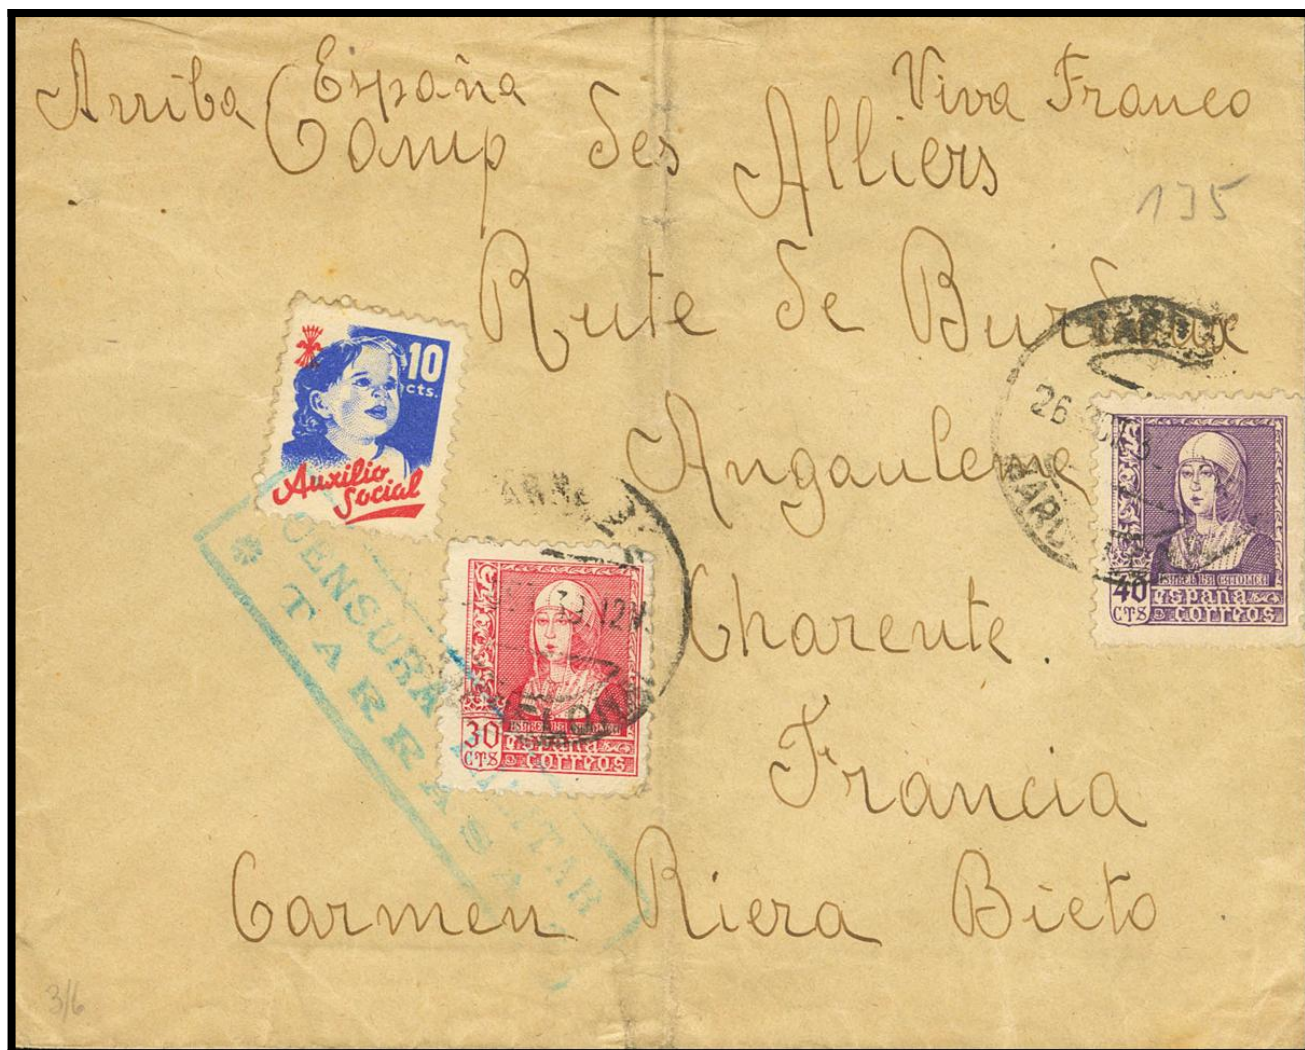 Arriba España Viva Franco
Camp des Alliers
135
Rute de Burdeux
Angauleme
Charente.
Francia
Carmen Riera Bieto.
10
cts.
Auxilio
Social
CENSURA MILITAR
* TARRASA
30
CTS
ISABEL LA CATOLICA
españa
correos
39.12M.
26
40
CTS
ISABEL LA CATOLICA
españa
correos
3/6